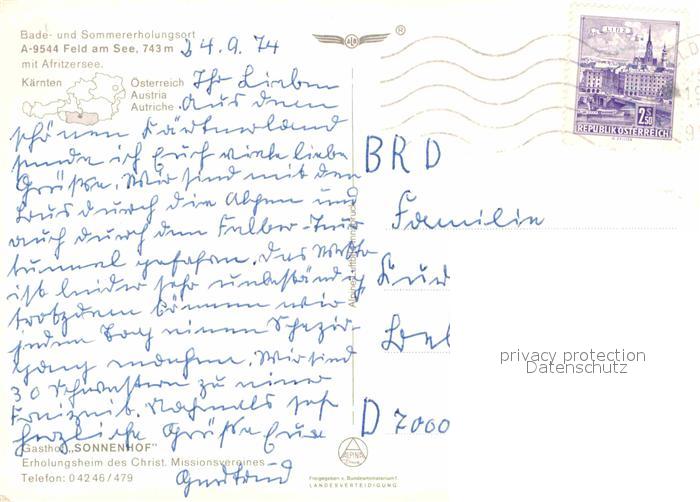 Bade- und Sommererholungsort
A-9544 Feld am See, 743 m
mit Afritzersee.
Kärnten
Österreich
Austria
Autriche
24.9.74
Ihr Lieben
Aus dem
schönen Kärtnerland
sende ich Euch viele liebe
Grüße. Wir sind mit dem
Bus durch die Alpen und
auch durch den Felber-Tau-
tunnel gefahren. Das Wetter
ist leider sehr unbeständig
trotzdem können wir
jeden Tag einen Spazier-
gang machen. Wir sind
30 Schwestern zu einer
Freizeit. Nochmals sehr
herzliche Grüße Eure
Gertrud
Gasthof „SONNENHOF"
Erholungsheim des Christ. Missionsvereines
Telefon: 0 42 46 / 479
ALPINA
Freigegeben v. Bundesministerium f.
LANDESVERTEIDIGUNG
LINZ
2.50
S
REPUBLIK ÖSTERREICH
BRD
Familie
D 7000
privacy protection
Datenschutz